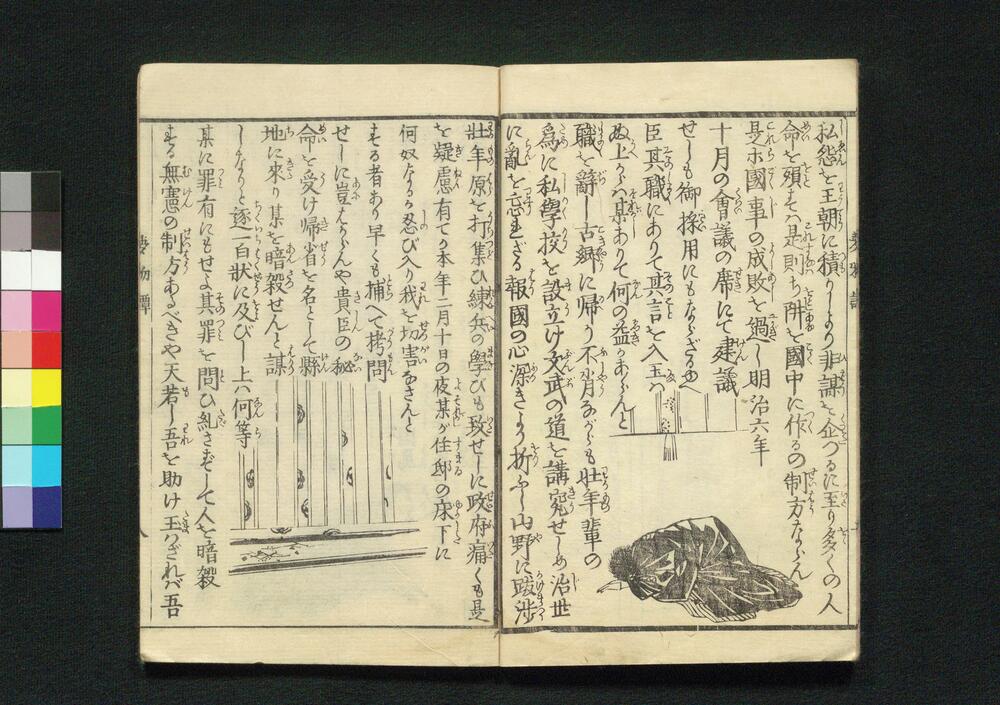 私怨を王朝に積りしより非謀を企つるに至り多くの人
命を殞すは是則ち阱を國中に作るの制方ならん
是ホ國事の成敗を過し明治六年
十月の會議の席にて建議
せしも御採用にもならざるへ
臣其職にありて其言を入玉は
ぬ上からは某ありて何の益かあらんと
職を辭し古郷に帰り不肖ながらも壮年輩の
為に私學校を設立け文武の道を講究せしめ治世
に亂を忘れざる報國の心深きより折ふし山野に跋渉
壮年原を打集ひ練兵の學びも致せしに政府痛くも是
を疑慮有てか本年二月十日の夜某が住邸の床下に
何奴なるか忍び入り我を切害なさんと
する者あり早くも捕へて拷問
せしに豈はからんや貴臣の秘
命を受け帰省を名として縣
地に來り某を暗殺せんと謀
しなりと逐一白状に及びし上は何等
某に罪有にもせよ其罪を問ひ糺さずして人を暗殺
する無憲の制方あるべきや天若し吾を助け玉はざれば吾